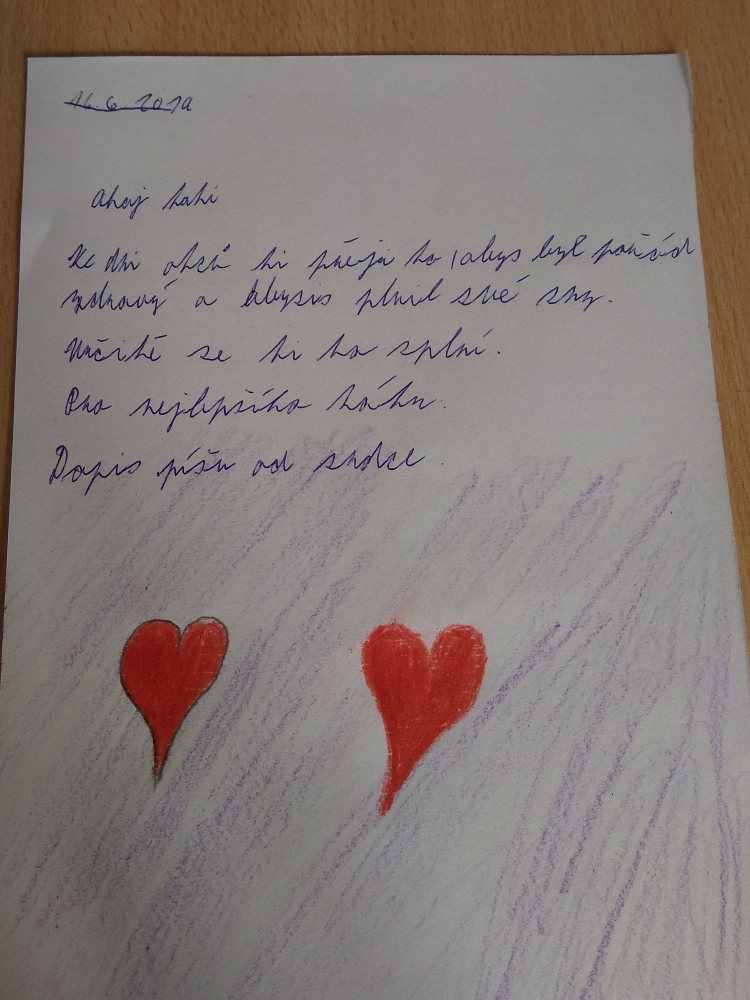 16.6.2019
Ahoj tati
Ke dni otců ti přeji to, abys byl pořád
zdravý a abysis plnil své sny.
Určitě se ti to splní.
Pro nejlepšího táhu.
Dopis píšu od srdce.